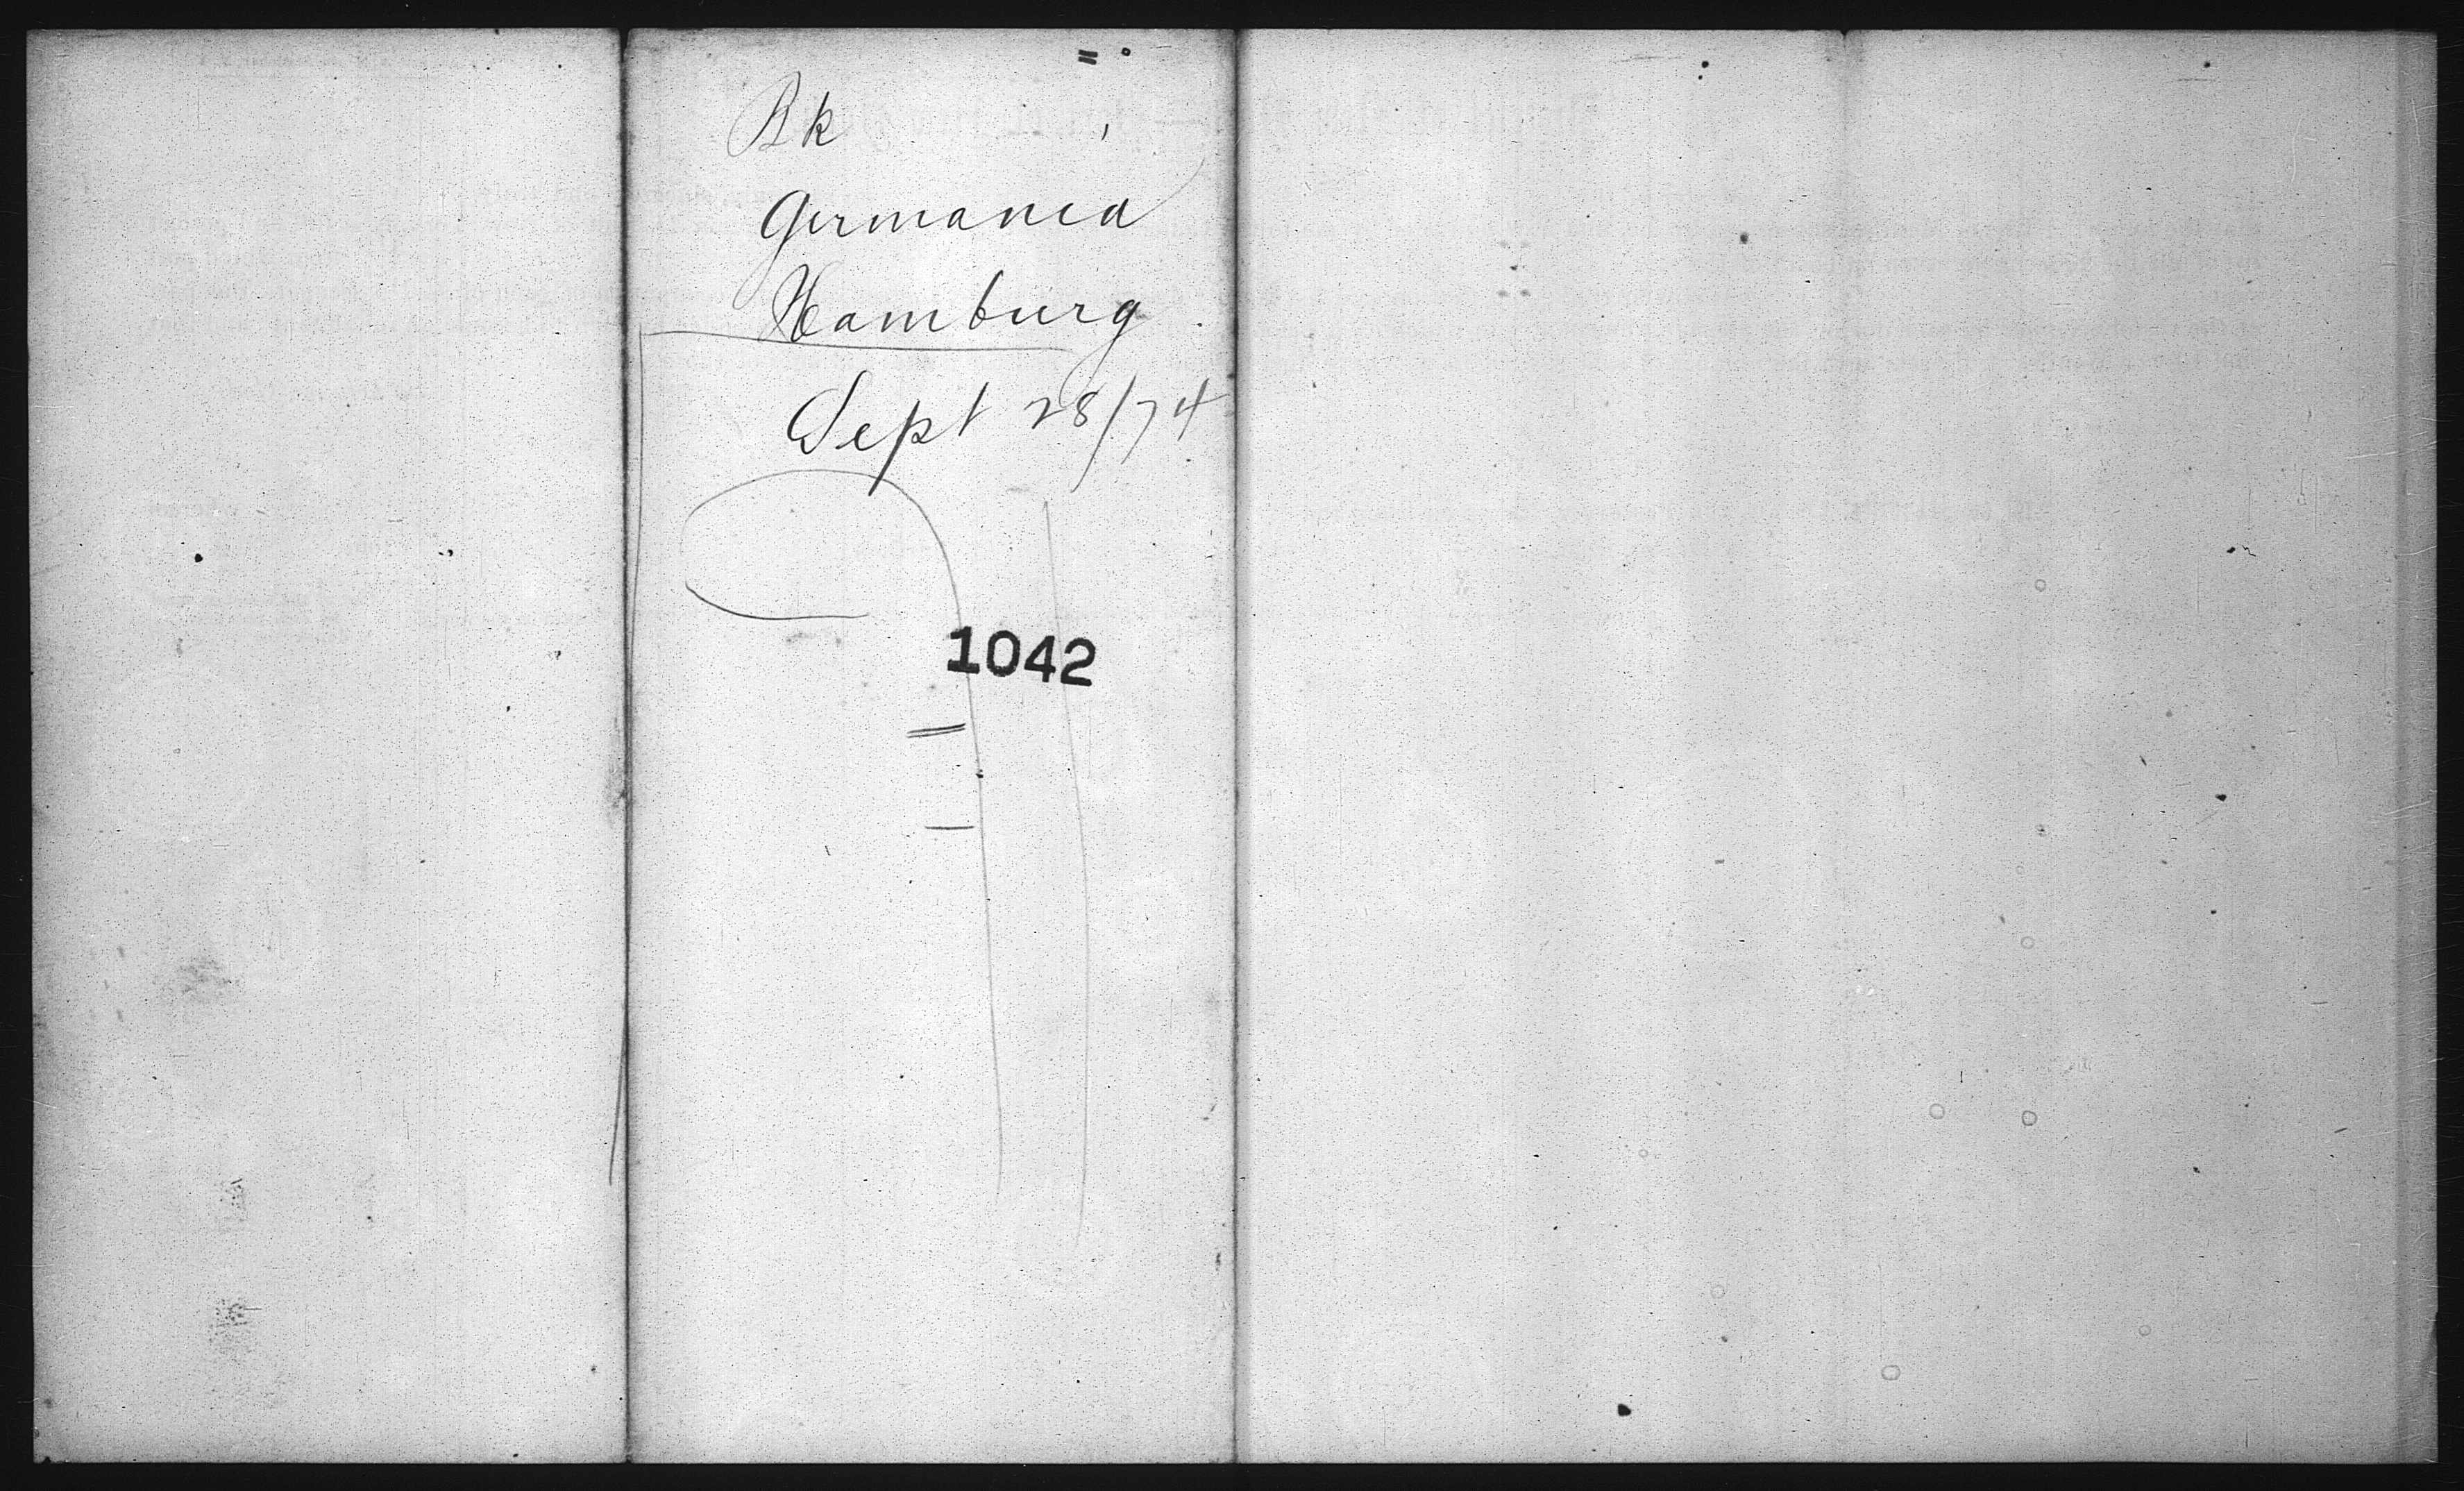 Bk
Germania
Hamburg
Sept 28/74
1042